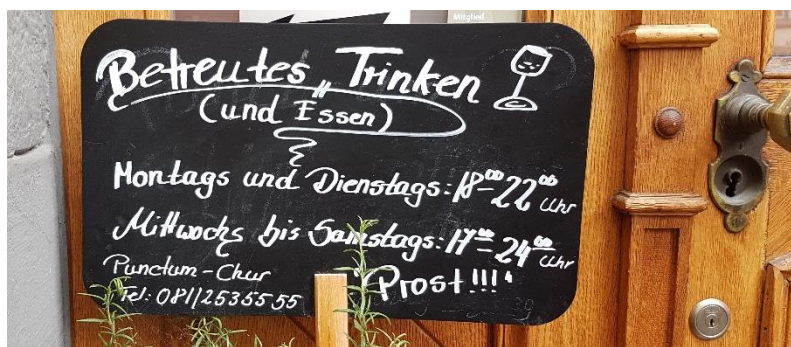 Mitglied
Betreutes Trinken
(und Essen)
Montags und Dienstags: 18⁰⁰-22⁰⁰ Uhr
Mittwochs bis Samstags: 17⁰⁰-24⁰⁰ Uhr
Punctum-Chur
Tel: 081/2535555
Prost!!!